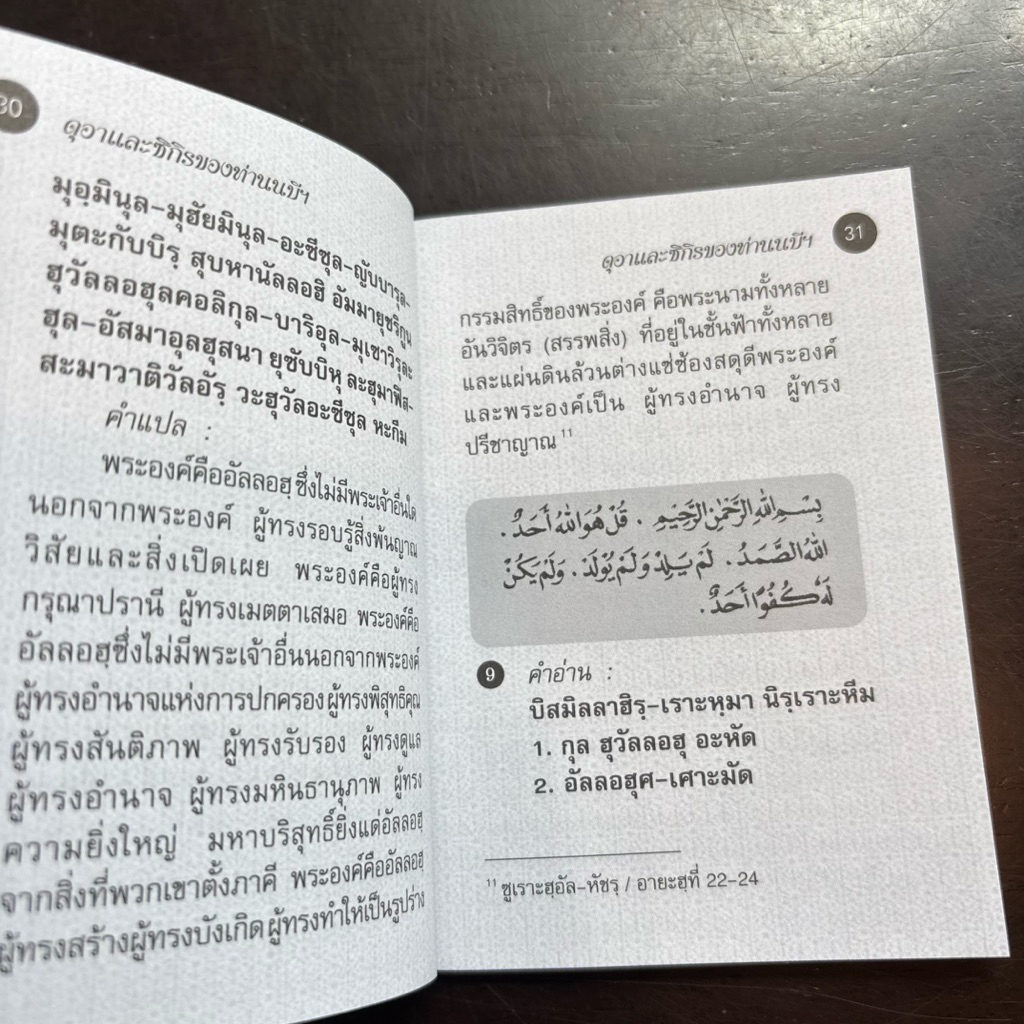 30
ดุอาและซิกิรของท่านนบีฯ
มุอฺมินุล-มุฮัยมินุล-อะซีซุล-ญับบารุล-
มุตะกับบิรฺ สุบหานัลลอฮิ อัมมายุชริกูน
ฮุวัลลอฮุลคอลิกุล-บาริอุล-มุเซาวิรุละ
ฮุล-อัสมาอุลฮุสนา ยุซับบิหุ ละฮุมาฟิส-
สะมาวาติวัลอัรฺ วะฮุวัลอะซีซุล หะกีม
คำแปล :
พระองค์คืออัลลอฮฺซึ่งไม่มีพระเจ้าอื่นใด
นอกจากพระองค์ ผู้ทรงรอบรู้สิ่งพ้นญาณ
วิสัยและสิ่งเปิดเผย พระองค์คือผู้ทรง
กรุณาปรานี ผู้ทรงเมตตาเสมอ พระองค์คือ
อัลลอฮฺซึ่งไม่มีพระเจ้าอื่นนอกจากพระองค์
ผู้ทรงอำนาจแห่งการปกครอง ผู้ทรงพิสุทธิคุณ
ผู้ทรงสันติภาพ ผู้ทรงรับรอง ผู้ทรงดูแล
ผู้ทรงอำนาจ ผู้ทรงมหินธานุภาพ ผู้ทรง
ความยิ่งใหญ่ มหาบริสุทธิ์ยิ่งแด่อัลลอฮฺ
จากสิ่งที่พวกเขาตั้งภาคี พระองค์คืออัลลอฮฺ
ผู้ทรงสร้างผู้ทรงบังเกิด ผู้ทรงทำให้เป็นรูปร่าง
ดุอาและซิกิรของท่านนบีฯ 31
กรรมสิทธิ์ของพระองค์ คือพระนามทั้งหลาย
อันวิจิตร (สรรพสิ่ง) ที่อยู่ในชั้นฟ้าทั้งหลาย
และแผ่นดินล้วนต่างแซ่ซ้องสดุดีพระองค์
และพระองค์เป็น ผู้ทรงอำนาจ ผู้ทรง
ปรีชาญาณ 11
بِسْمِ اللهِ الرَّحْمٰنِ الرَّحِيْمِ . قُلْ هُوَ اللهُ أَحَدٌ .
اللهُ الصَّمَدُ . لَمْ يَلِدْ وَلَمْ يُوْلَدْ . وَلَمْ يَكُنْ
لَهُ كُفُوًا أَحَدٌ .
9 คำอ่าน :
บิสมิลลาฮิรฺ-เราะหฺมา นิรฺเราะหีม
1. กุล ฮุวัลลอฮุ อะหัด
2. อัลลอฮุศ-เศาะมัด
11 ซูเราะฮฺอัล-หัชรฺ / อายะฮฺที่ 22-24